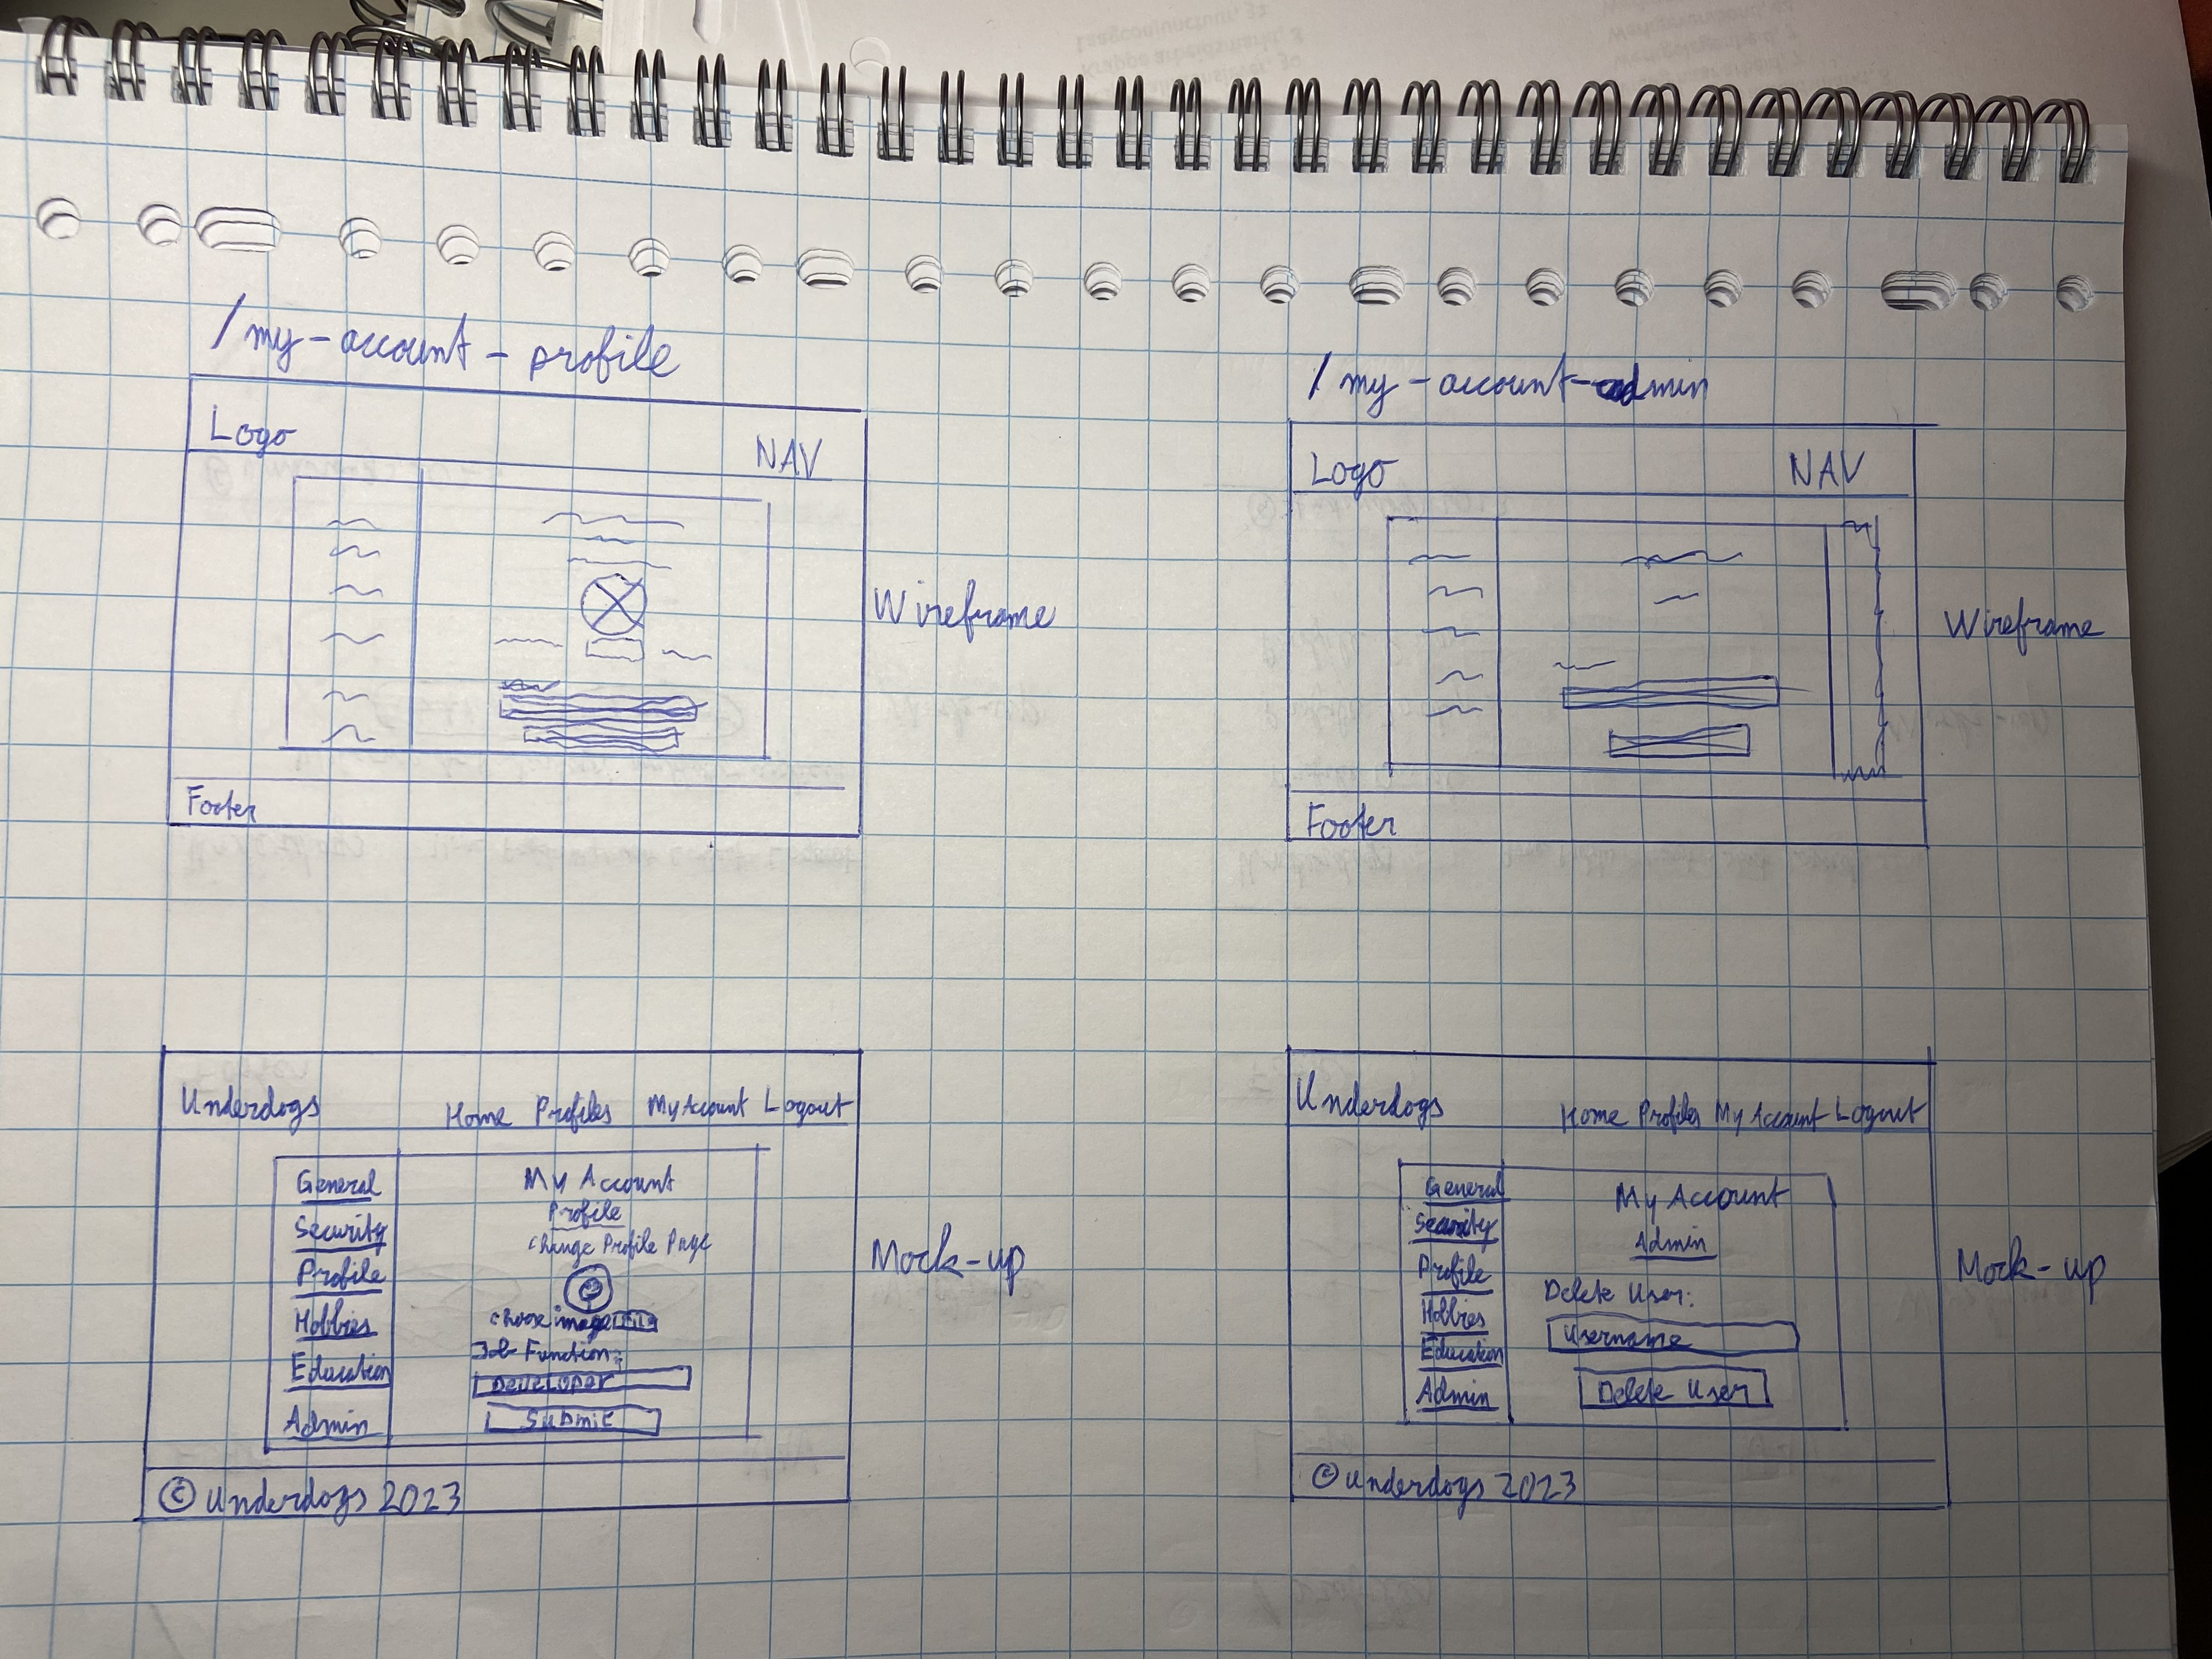 /my-account-profile
Logo NAV
Wireframe
Footer
Underdogs Home Profiles My Account Logout
General
Security
Profile
Hobbies
Education
Admin
My Account
Profile
Change Profile Page
Choose image
Job Function:
Developer
Submit
Mock-up
© Underdogs 2023
/my-account-admin
Logo NAV
Wireframe
Footer
Underdogs Home Profiles My Account Logout
General
Security
Profile
Hobbies
Education
Admin
My Account
Admin
Delete User:
Username
Delete User
Mock-up
© Underdogs 2023